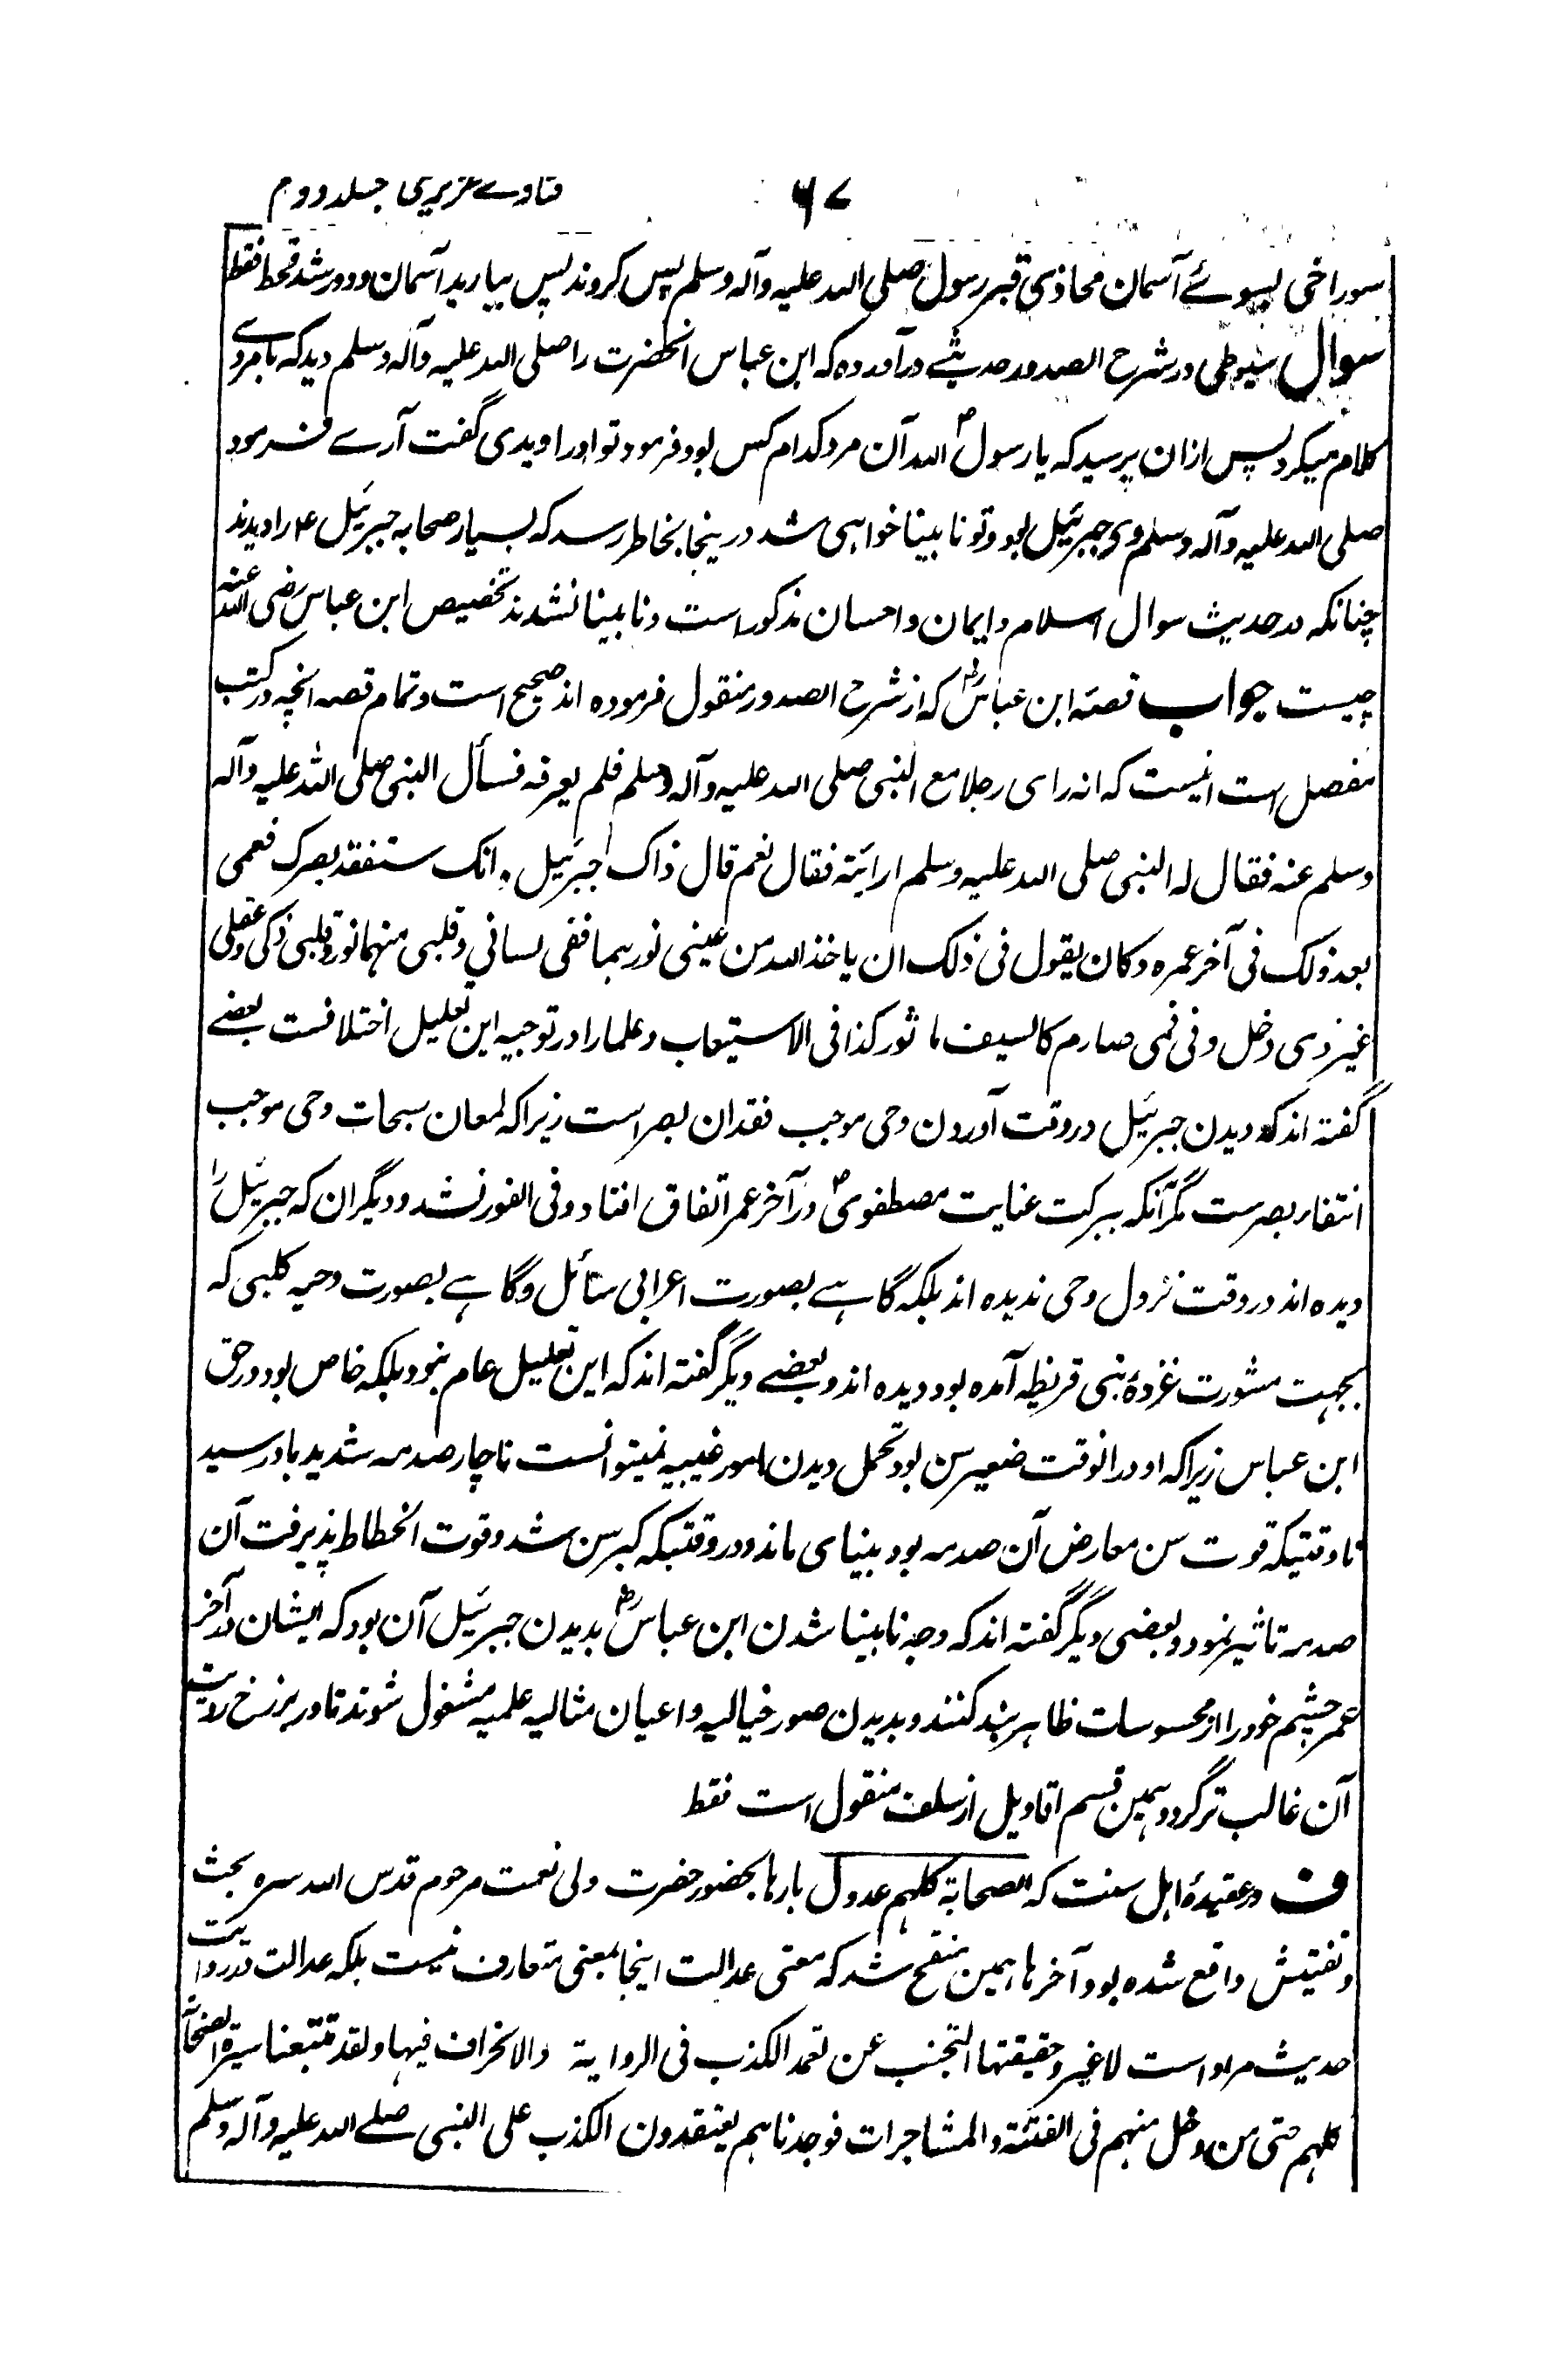 فتاوے عزیزی جلد دوم
۶۷
سوراخی بسوئے آسمان محاذی قبر رسول صلی الله علیه وآله وسلم پس کروند پس بیارید آسمان و دور شد قحط فقط
سوال سیوطی در شرح الصدور حدیثے در آورده که ابن عباس آنحضرت را صلی الله علیه وآله وسلم دید که با مردے
کلام میکرد پس ازان پرسید که یا رسول الله ص آن مرد کدام کس بود فرمود تو اورا دیدی گفت آرے فرمود
صلی الله علیه وآله وسلم وی جبرئیل بود و تو نابینا خواهی شد درینجا بخاطر رسد که بسیار صحابه جبرئیل ء را دیدند
چنانکه در حدیث سوال اسلام و ایمان و احسان مذکور است و نابینا نشدند تخصیص ابن عباس رضی الله عنه
چیست جواب قصهٔ ابن عباس رض که از شرح الصدور منقول فرموده اند صحیح است و تمام قصه آنچه در کتب
مفصل است اینست که انه رای رجلا مع النبی صلی الله علیه وآله وسلم فلم یعرفه فسأل النبی صلی الله علیه وآله
وسلم عنه فقال له النبی صلی الله علیه وسلم ارایته فقال نعم قال ذاک جبرئیل و انک ستفقد بصرک فعمی
بعد ذلک فی آخر عمره و کان یقول فی ذلک ان یاخذ الله من عینی نورهما ففی لسانی و قلبی منهما نور و قلبی ذکی و عقلی
غیر ذی دخل و فی فمی صارم کالسیف ماثور کذا فی الاستیعاب و علما را در توجیه این تعلیل اختلافست بعضے
گفته اند که دیدن جبرئیل در وقت آوردن وحی موجب فقدان بصر است زیرا که لمعان سبحات وحی موجب
انتفاء بصرست مگر آنکه ببرکت عنایت مصطفوی ص در آخر عمر اتفاق افتاد و فی الفور نشد و دیگران که جبرئیل را
دیده اند در وقت نزول وحی ندیده اند بلکه گاهے بصورت اعرابی سائل و گاهے بصورت دحیه کلبی که
بجهت مشورت غزوهٔ بنی قریظه آمده بود دیده اند و بعضے دیگر گفته اند که این تعلیل عام نبود بلکه خاص بود در حق
ابن عباس زیرا که او در انوقت صغیر سن بود تحمل دیدن امور غیبیه نمیتوانست ناچار صدمه شدید باو رسید
تا وقتیکه قوت سن معارض آن صدمه بود بینای ماند و در وقتیکه کبر سن شد و قوت انحطاط پذیرفت آن
صدمه تاثیر نمود و بعضی دیگر گفته اند که وجه نابینا شدن ابن عباس رض بدیدن جبرئیل آن بود که ایشان در آخر
عمر چشم خود را از محسوسات ظاهر بند کنند و بدیدن صور خیالیه و اعیان مثالیه علمیه مشغول شوند تا در برزخ رویت
آن غالب تر گردد و همین قسم اقاویل از سلف منقول است فقط
ف در عقیدهٔ اهل سنت که الصحابة کلهم عدول بارها بحضور حضرت ولی نعمت مرحوم قدس الله سره بحث
و تفتیش واقع شده بود آخر ها همین منقح شد که معنی عدالت اینجا بمعنی متعارف نیست بلکه عدالت در روایت
حدیث مراد است لا غیر و حقیقتها التجنب عن تعمد الکذب فی الروایة والانحراف فیها ولقد تتبعنا سیرة الصحابة
کلهم حتی من دخل منهم فی الفتنة والمشاجرات فوجدناهم یعتقدون الکذب علی النبی صلے الله علیه وآله وسلم